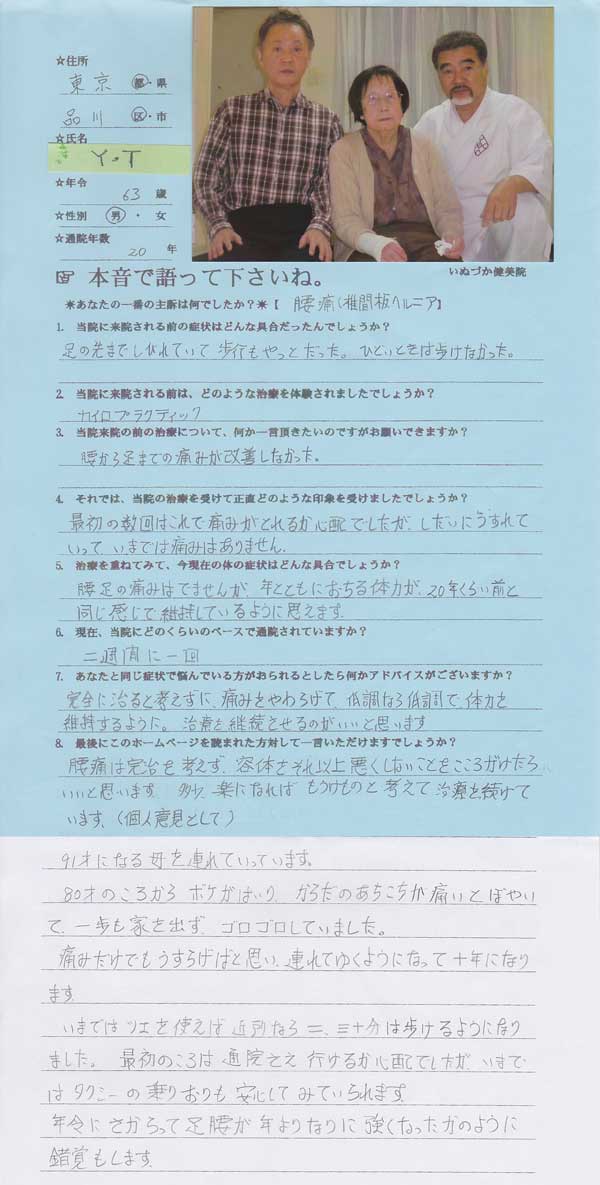 ☆住所
東京 都・県
品川 区・市
☆氏名
Y・T
☆年令
63 歳
☆性別 男・女
☆通院年数
20 年
いぬづか健美院
本音で語って下さいね。
＊あなたの一番の主訴は何でしたか？＊【 腰痛(椎間板ヘルニア)】
1. 当院に来院される前の症状はどんな具合だったんでしょうか？
足の先までしびれていて歩行もやっとだった。ひどいときは歩けなかった。
2. 当院に来院される前は、どのような治療を体験されましたでしょうか？
カイロプラクティック
3. 当院来院の前の治療について、何か一言頂きたいのですがお願いできますか？
腰から足までの痛みが改善しなかった。
4. それでは、当院の治療を受けて正直どのような印象を受けましたでしょうか？
最初の数回はこれで痛みがとれるか心配でしたが、しだいにうすれて
いって、いまでは痛みはありません。
5. 治療を重ねてみて、今現在の体の症状はどんな具合でしょうか？
腰足の痛みはでませんが、年とともにおちる体力が、20年くらい前と
同じ感じで維持しているように思えます。
6. 現在、当院にどのくらいのペースで通院されていますか？
二週間に一回
7. あなたと同じ症状で悩んでいる方がおられるとしたら何かアドバイスがございますか？
完全に治ると考えずに、痛みをやわらげて、低調なら低調で、体力を
維持するように。治療を継続させるのがいいと思います
8. 最後にこのホームページを読まれた方対して一言いただけますでしょうか？
腰痛は完治を考えず、容体をそれ以上悪くしないことをこころがけたら
いいと思います。多少、楽になればもうけものと考えて治療を続けて
います。(個人意見として)
91才になる母を連れていっています。
80才のころからボケがはいり、からだのあちこちが痛いとぼやい
て、一歩も家を出ず、ゴロゴロしていました。
痛みだけでもうすらげばと思い、連れてゆくようになって十年になり
ます。
いまではツエを使えば近所なら二、三十分は歩けるようになり
ました。最初のころは通院さえ行けるか心配でしたが、いまで
はタクシーの乗りおりも安心してみていられます。
年令にさからって足腰が年よりなりに強くなったかのように
錯覚もします。